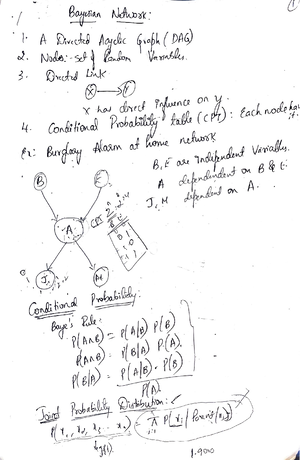 Bayesian Network:
1. A Directed Acyclic Graph (DAG)
2. Nodes: set of Random Variables.
3. Directed Link
X → Y
X has direct influence on y
4. Conditional Probability table (CPT): Each node has it.
Ex: Burglary Alarm at home network
B, E are independent Variables.
A dependent on B & E.
J, M dependent on A.
B
E
A
CPT
J
M
Conditional Probability:
Baye's Rule:
P(A∩B) = P(A|B) P(B)
P(A∩B) = P(B|A) P(A)
P(B|A) = P(A|B) . P(B)
P(A)
Joint Probability Distribution:
P(x₁, x₂, x₃ ... xₙ) = π P(xᵢ | Parent(xᵢ))